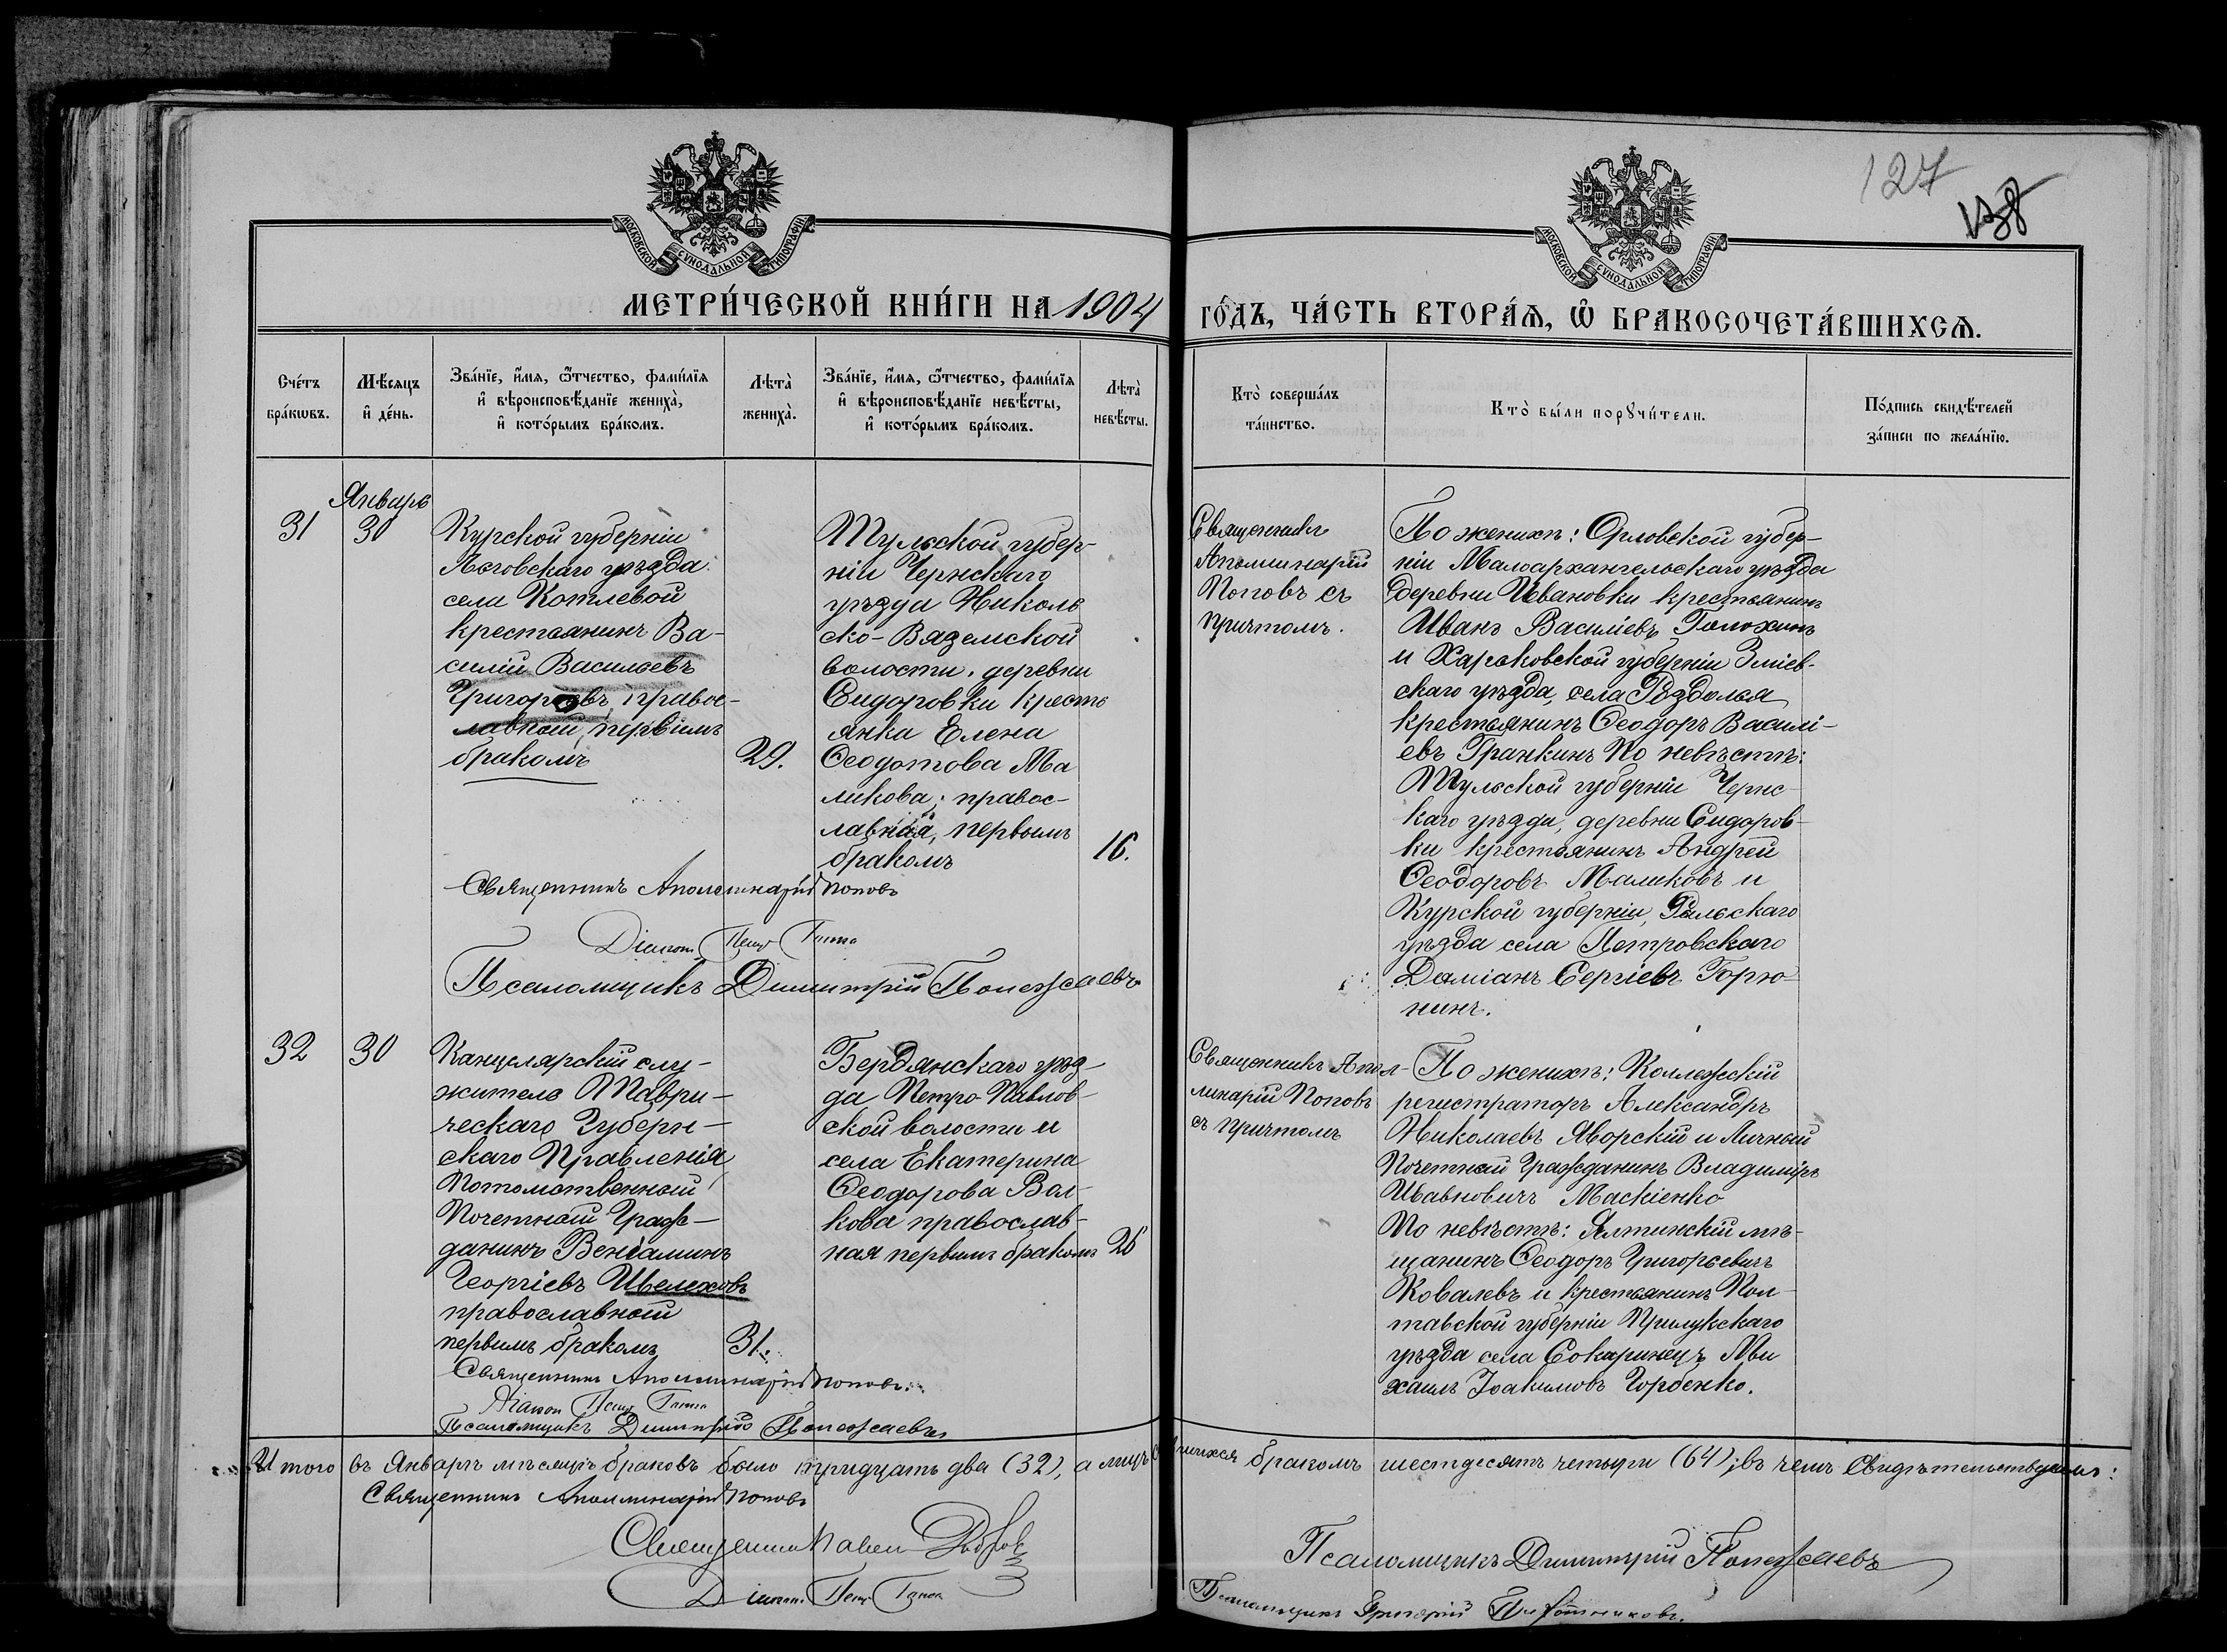 127
138
МОСКОВСКОЙ СѴНОДАЛЬНОЙ ТИПОГРАФІИ
МОСКОВСКОЙ СѴНОДАЛЬНОЙ ТИПОГРАФІИ
МЕТРИ́ЧЕСКОЙ КНИ́ГИ НА 1904 ГО́ДЪ, ЧА́СТЬ ВТОРА́Ѧ, Ѽ БРАКОСОЧЕТА́ВШИХСѦ.
Сче́тъ
бра́кѡвъ.
Мѣ́сяцъ
и҆ де́нь.
Зва́нїе, и҆́мя, ѻ҆́тчество, фами́лїя
и҆ вѣроисповѣ́данїе жениха̀,
и҆ кото́рымъ бра́комъ.
Лѣта̀
жениха̀.
Зва́нїе, и҆́мя, ѻ҆́тчество, фами́лїя
и҆ вѣроисповѣ́данїе невѣ́сты,
и҆ кото́рымъ бра́комъ.
Лѣта̀
невѣ́сты.
Кто̀ соверша́лъ
та́инство.
Кто̀ бы́ли порꙋчи́тели.
По́дпись свидѣ́телей
за́писи по жела́нїю.
Январь
31
30
Курской губерніи
Льговскаго уѣзда
села Котлевой
крестьянинъ Ва-
силій Васильевъ
Григорьевъ, правос-
лавный, первымъ
бракомъ
29.
Тульской губер-
ніи Чернскаго
уѣзда Николь
ско-Вяземской
волости, деревни
Сидоровки кресть
янка Елена
Ѳеодотова Ма
ликова; правос-
лавная, первымъ
бракомъ
16.
Священникъ
Аполлинарій
Поповъ съ
причтомъ.
По женихѣ: Орловской губер-
ніи Малоархангельскаго уѣзда
деревни Ивановки крестьянинъ
Иванъ Василіевъ
и Харьковской губерніи Зміев-
скаго уѣзда, села
крестьянинъ Ѳеодоръ Василі-
евъ Гранкинъ По невѣстѣ:
Тульской губерніи Чернс-
каго уѣзда, деревни Сидоров-
ки крестьянинъ Андрей
Ѳеодоровъ Маликовъ и
Курской губерніи, Рыльскаго
уѣзда села Петровскаго
Даміанъ Сергіевъ Горю-
нинъ.
Священникъ Аполлинарій Поповъ
Діаконъ Петръ
Псаломщикъ Димитрій Полежаевъ
32
30
Канцелярскій слу-
житель Таври-
ческаго Губерн-
скаго Правленія,
Потомственный
Почетный Граж-
данинъ Веніаминъ
Георгіевъ Шелеховъ
православный
первымъ бракомъ
31.
Бердянскаго уѣз-
да Петро-Павлов-
ской волости и
села Екатерина
Ѳеодорова Вол-
кова православ-
ная первымъ бракомъ
26
Священникъ Апол-
линарій Поповъ
съ причтомъ
По женихѣ: Коллежскій
регистраторъ Александръ
Николаевъ Яворскій и Личный
Почетный Гражданинъ Владиміръ
Ивановичъ Маскіенко
По невѣстѣ: Ялтинскій мѣ-
щанинъ Ѳеодоръ Григорьевичъ
Ковалевъ и крестьянинъ Пол-
тавской губерніи Прилукскаго
уѣзда села Сокиринецъ Ми
хаилъ Іоакимовъ Горбенко.
Священникъ Аполлинарій Поповъ.
Діаконъ Петръ
Псаломщикъ Димитрій Полежаевъ
Итого въ Январѣ мѣсяцѣ браковъ было тридцать два (32), а лицъ бракомъ шестдесятъ четыри (64); въ чемъ Свидѣтельствуемъ:
Священникъ Аполлинарій Поповъ
Священникъ Павелъ
Діаконъ Петръ
Псаломщикъ Димитрій Полежаевъ
Псаломщикъ Григорій